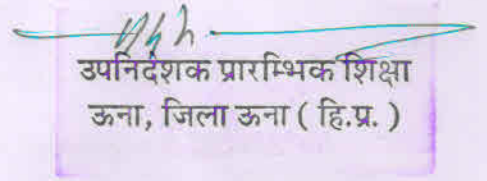 उपनिदेशक प्रारम्भिक शिक्षा
ऊना, जिला ऊना ( हि.प्र. )